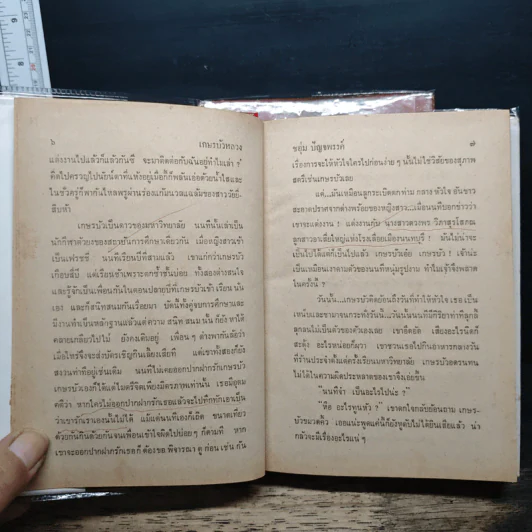 ๖ เกษรบัวหลวง
แต่งงานไปแล้วก็แล้วกันซี จะมาติดต่อกับฉันอยู่ทำไมเล่า ?
คิดไปครวญไปนัยน์ตาที่แห้งอยู่เมื่อกี้ก็พลันเอ่อด้วยน้ำใสและ
ในชั่วครู่ก็พากันไหลพรูผ่านร่องแก้มนวลแฉล้มของสาววัยยี่-
สิบห้า
เกษรบัวเป็นดาวของมหาวิทยาลัย นนทีนั้นเล่าเป็น
นักกีฬาตัวยงของสถาบันการศึกษาเดียวกัน เมื่อหญิงสาวเข้า
เป็นเฟรชชี่ นนทีเรียนปีที่สามแล้ว เขาแก่กว่าเกษรบัว
เกือบสี่ปี แต่เรียนช้าเพราะตกซ้ำชั้นบ่อย ทั้งสองต่างสนใจ
และรู้จักเป็นเพื่อนกันในตอนปลายปีที่เกษรบัวเข้าเรียนนั่น
เอง และก็สนิทสนมกันเรื่อยมา บัดนี้ทั้งคู่จบการศึกษาและ
มีงานทำเป็นหลักฐานแล้วแต่ความ สนิท สนม นั้น ก็ยัง หาได้
คลายเกลียวไปไม่ ยังคงเดิมอยู่ เพื่อนๆ ต่างพากันลือว่า
เมื่อไหร่จึงจะส่งบัตรเชิญกินเลี้ยงเสียที แต่เขาทั้งสองก็ยัง
สงวนท่าทีอยู่เช่นเดิม นนทีไม่เคยออกปากฝากรักเกษรบัว
เกษรบัวเองก็ได้แต่ไมตรีจิตเพียงมิตรภาพเท่านั้น เธอมีอุดม
คติว่า หากใครไม่ออกปากฝากรักเธอแล้วจะไปทึกทักเอาเป็น
ว่าเขารักเราเองนั้นไม่ได้ แม้แต่นนทีเองก็เถิด ขนาดเที่ยว
ด้วยกันกินด้วยกันจนเพื่อนเข้าใจผิดไปบ่อยๆ ก็ตามที หาก
เขาจะออกปากฝากรักเธอ ก็ ต้องขอ พิจารณา ดู ก่อน เช่น กัน
ชอุ่ม ปัญจพรรค์ ๗
เรื่องการจะให้หัวใจใครไปก่อนง่าย ๆ นั้นไม่ใช่วิสัยของสุภาพ
สตรีเช่นเกษรบัวเลย
แต่...มันเหมือนลูกระเบิดตกท่าม กลาง หัวใจ อันขาว
สะอาดปราศจากด่างพร้อยของหญิงสาว...เมื่อนนทีบอกข่าวว่า
เขาจะแต่งงาน ! แต่งงานกับ นางสาวดวงพร วิภาสุรโสภณ
ลูกสาวอาเสี่ยใหญ่แห่งโรงเลื่อยเมืองนนทบุรี ! มันไม่น่าจะ
เป็นไปได้แต่ก็เป็นไปแล้ว เกษรบัวเอ๋ย เกษรบัว ! เจ้าน่ะ
เป็นเหมือนเงาตามตัวของนนทีหนุ่มรูปงาม ทำไมเจ้าจึงพลาด
ในครั้งนี้ ?
วันนั้น...เกษรบัวคิดย้อนถึงวันที่ทำให้หัวใจ เธอ เป็น
เหน็บและชามาจนกระทั่งวันนี้...วันนั้นนนทีมีกิริยาท่าทีลุกลี้
ลุกลนไม่เป็นตัวของตัวเองเลย เขาอึดอัด เสียงอะไรนิดก็
สะดุ้ง อะไรหน่อยก็ผวา เขาชวนเธอไปกินอาหารกลางวัน
ที่ร้านประจำตั้งแต่ครั้งเรียนมหาวิทยาลัย เกษรบัวอดรนทน
ไม่ได้ในความผิดประหลาดของเขาจึงเอ่ยขึ้น
"นนที่จ๋า เป็นอะไรไปน่ะ ?"
"หือ อะไรทูนหัว ?" เขาตกใจกลับย้อนถาม เกษร-
บัวขมวดคิ้ว เธอแน่ะพูดแค่นี้ก็ยังหูดับไม่ได้ยินเสียแล้ว น่า
กลัวจะมีเรื่องอะไรแน่ ๆ